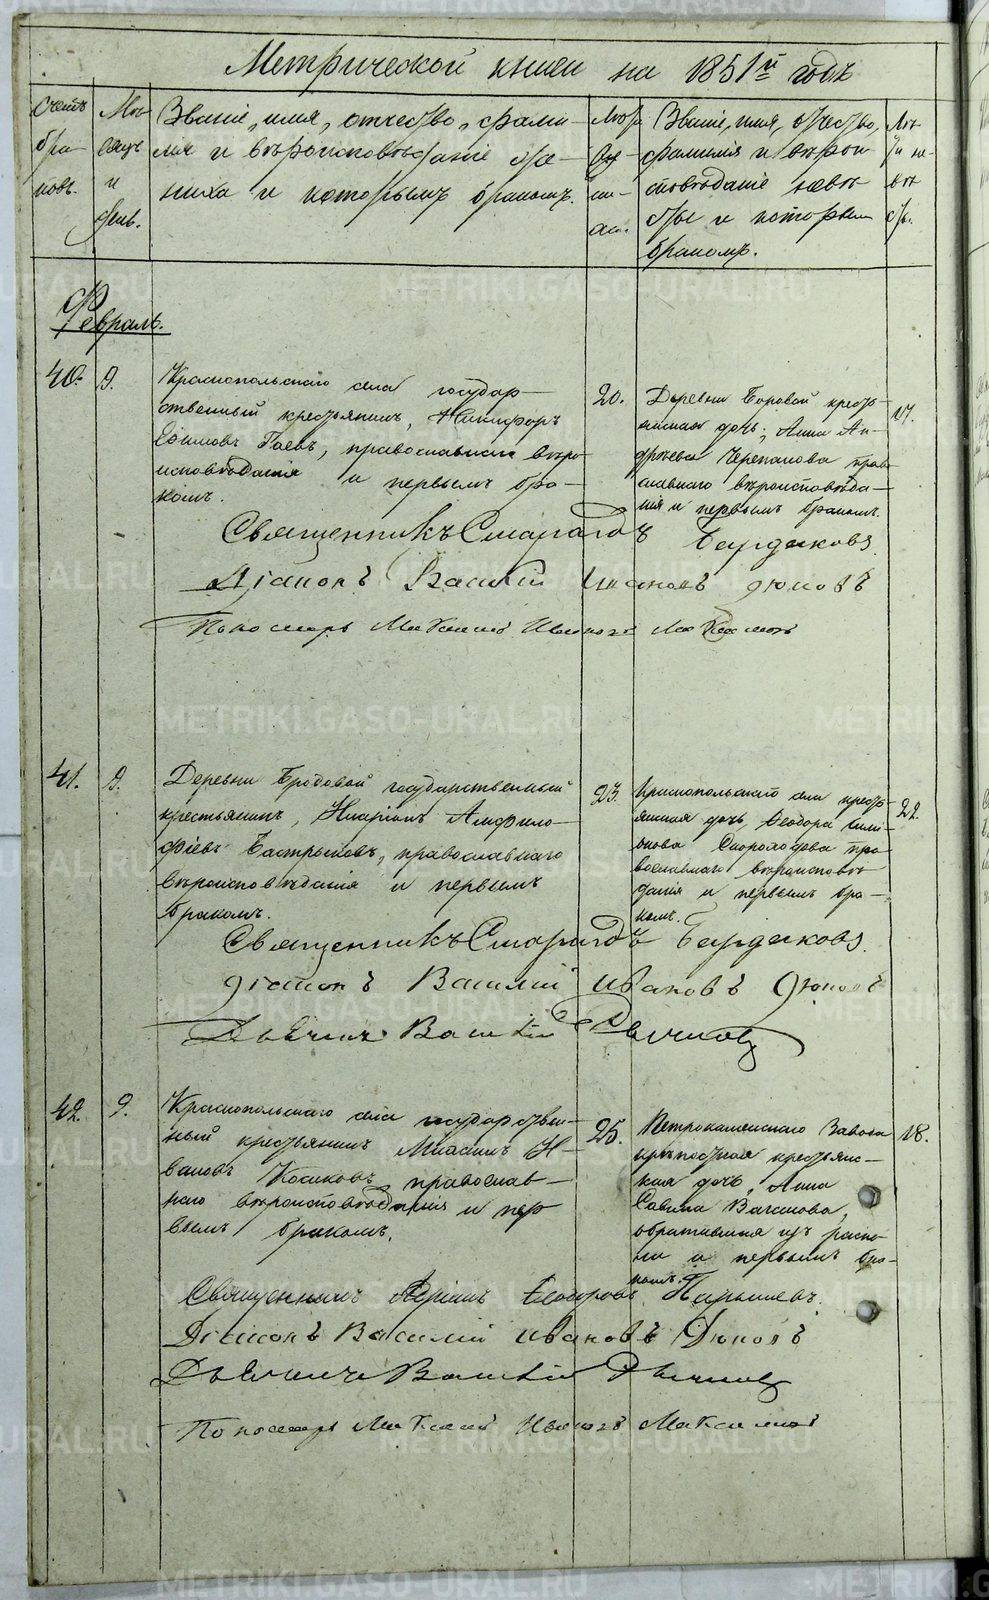 Метрической книги на 1851й годъ
Счетъ браковъ.
Мѣсяцъ и день.
Званіе, имя, отчество, фами-
лія и вѣроисповѣданіе же-
ниха и которымъ бракомъ.
Лѣта жениха.
Званіе, имя, отчество,
фамилія и вѣрои
сповѣданіе невѣ
сты и которым
бракомъ.
Лѣта невѣсты.
Февраль.
40. 9.
Краснопольскаго села государ-
ственный крестьянинъ, Никифоръ
Ефимовъ Гаевъ, православнаго вѣро
исповѣданія и первымъ бра-
комъ.
20.
Деревни Боровой кресть
янская дочь, Анна Ан-
дреева Черепанова прав
славнаго вѣроисповѣда-
нія и первымъ бракомъ.
17.
Священникъ Смарагдъ Бердиковъ
Діаконъ Василій Ивановъ Дюковъ
Пономарь Максимъ Ивановъ Максимовъ
41. 9.
Деревни Бродовой государственный
крестьянинъ, Иларіонъ Амфило-
фіевъ Бастрыковъ, православнаго
вѣроисповѣданія и первымъ
бракомъ.
23.
Краснопольскаго села кресть
янская дочь, Ѳеодора
Скороходова пра
вославнаго вѣроисповѣ
данія и первымъ бра-
комъ.
22.
Священникъ Смарагдъ Бердиковъ
Діаконъ Василій Ивановъ
Дьячекъ Василій
42. 9.
Краснопольскаго села государствен-
ный крестьянинъ И-
вановъ Косиковъ, православ-
наго вѣроисповѣданія и пер
вымъ бракомъ.
25.
Петрокаменскаго Завода
крѣпостная крестьянс-
кая дочь, Анна
Савина
обратившаяся изъ раско-
ла и первымъ бра-
комъ.
18.
Священникъ Ѳеодоровъ
Діаконъ Василій Ивановъ
Дьячекъ Василій
Пономарь Максимъ Ивановъ Максимовъ
METRIKI.GASO-URAL.RU